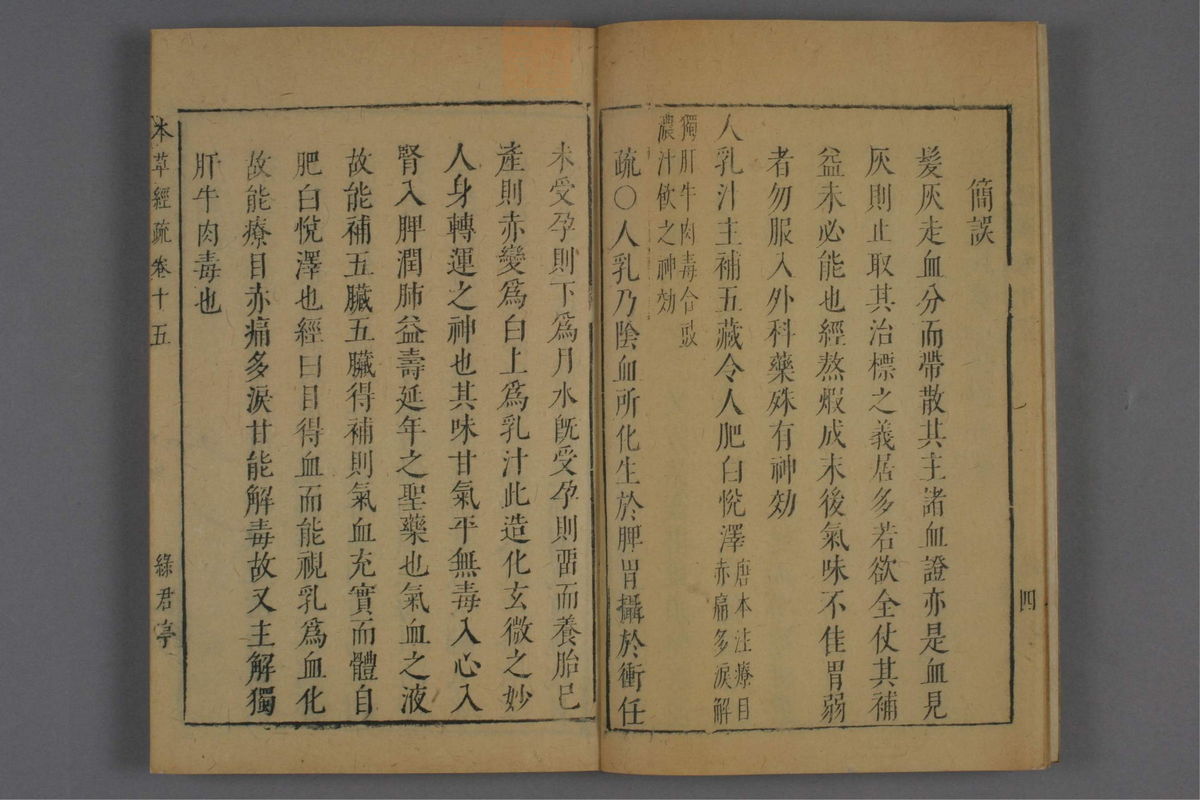 四
簡誤
髮灰走血分而帶散其主諸血證亦是血見
灰則止取其治標之義居多若欲全仗其補
益未必能也經熬煆成末後氣味不佳胃弱
者勿服入外科藥殊有神効
人乳汁主補五藏令人肥白悅澤
唐本注療目
赤痛多淚解
獨肝牛肉毒合豉
濃汁飲之神効
疏〇人乳乃陰血所化生於脾胃攝於衝任
未受孕則下爲月水既受孕則畱而養胎已
產則赤變爲白上爲乳汁此造化玄微之妙
人身轉運之神也其味甘氣平無毒入心入
腎入脾潤肺益壽延年之聖藥也氣血之液
故能補五臟五臟得補則氣血充實而體自
肥白悅澤也經曰目得血而能視乳爲血化
故能療目赤痛多淚甘能解毒故又主解獨
肝牛肉毒也
本草經疏 卷十五 綠君亭